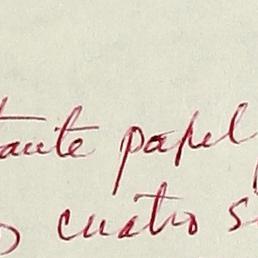 tante papel
cuatro